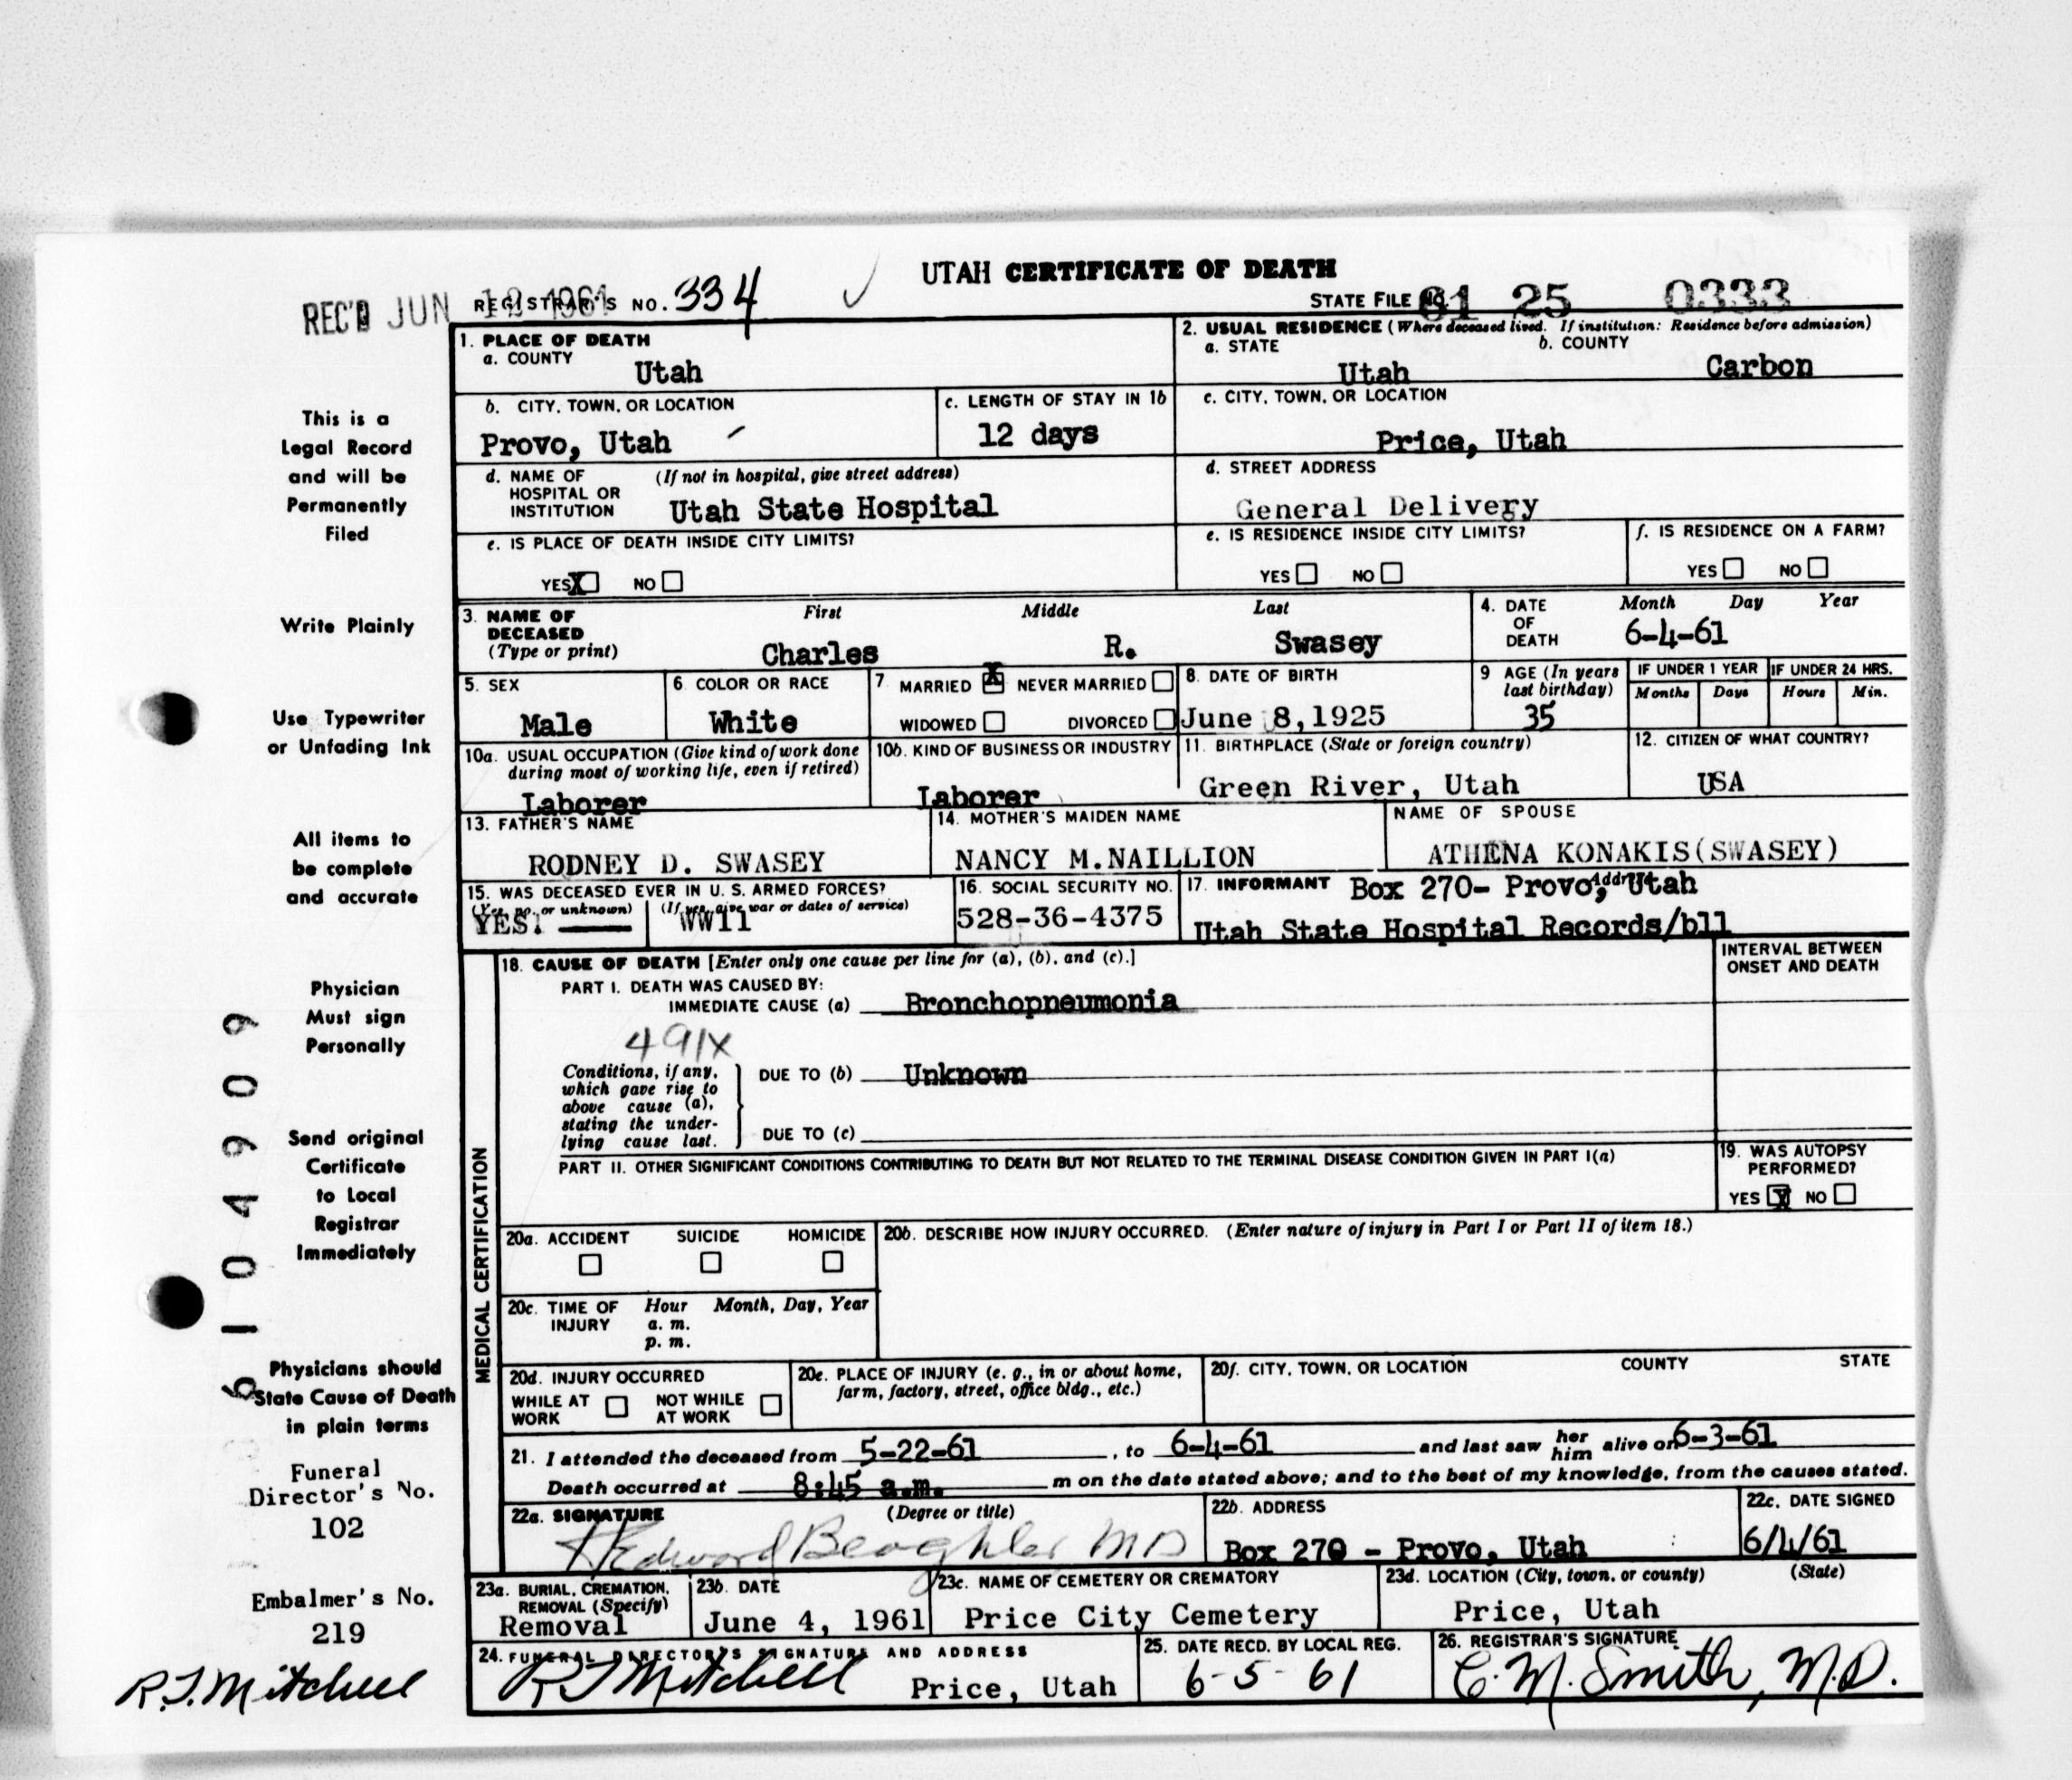 UTAH CERTIFICATE OF DEATH
REC'D JUN 12 1961 REGISTRAR'S NO. 334 STATE FILE NO. 61 25 0333
1. PLACE OF DEATH
a. COUNTY
Utah
2. USUAL RESIDENCE (Where deceased lived. If institution: Residence before admission)
a. STATE b. COUNTY
Utah Carbon
b. CITY, TOWN, OR LOCATION
Provo, Utah
c. LENGTH OF STAY IN 1b
12 days
c. CITY, TOWN, OR LOCATION
Price, Utah
d. NAME OF HOSPITAL OR INSTITUTION (If not in hospital, give street address)
Utah State Hospital
d. STREET ADDRESS
General Delivery
e. IS PLACE OF DEATH INSIDE CITY LIMITS?
YES X NO
e. IS RESIDENCE INSIDE CITY LIMITS?
YES NO
f. IS RESIDENCE ON A FARM?
YES NO
3. NAME OF DECEASED (Type or print)
First Middle Last
Charles R. Swasey
4. DATE OF DEATH
Month Day Year
6-4-61
5. SEX
Male
6. COLOR OR RACE
White
7 MARRIED X NEVER MARRIED
WIDOWED DIVORCED
8. DATE OF BIRTH
June 8,1925
9 AGE (In years last birthday)
35
IF UNDER 1 YEAR IF UNDER 24 HRS.
Months Days Hours Min.
10a. USUAL OCCUPATION (Give kind of work done during most of working life, even if retired)
Laborer
10b. KIND OF BUSINESS OR INDUSTRY
Laborer
11. BIRTHPLACE (State or foreign country)
Green River, Utah
12. CITIZEN OF WHAT COUNTRY?
USA
13. FATHER'S NAME
RODNEY D. SWASEY
14. MOTHER'S MAIDEN NAME
NANCY M.NAILLION
NAME OF SPOUSE
ATHENA KONAKIS(SWASEY)
15. WAS DECEASED EVER IN U. S. ARMED FORCES?
(Yes, no, or unknown) (If yes, give war or dates of service)
YES. WW11
16. SOCIAL SECURITY NO.
528-36-4375
17. INFORMANT Address
Box 270- Provo, Utah
Utah State Hospital Records/bll
MEDICAL CERTIFICATION
18. CAUSE OF DEATH [Enter only one cause per line for (a), (b), and (c).]
INTERVAL BETWEEN ONSET AND DEATH
PART I. DEATH WAS CAUSED BY:
IMMEDIATE CAUSE (a) Bronchopneumonia
491X
Conditions, if any, which gave rise to above cause (a), stating the underlying cause last.
DUE TO (b) Unknown
DUE TO (c)
PART II. OTHER SIGNIFICANT CONDITIONS CONTRIBUTING TO DEATH BUT NOT RELATED TO THE TERMINAL DISEASE CONDITION GIVEN IN PART I(a)
19. WAS AUTOPSY PERFORMED?
YES X NO
20a. ACCIDENT SUICIDE HOMICIDE
20b. DESCRIBE HOW INJURY OCCURRED. (Enter nature of injury in Part I or Part II of item 18.)
20c. TIME OF INJURY Hour Month, Day, Year
a. m.
p. m.
20d. INJURY OCCURRED
WHILE AT WORK NOT WHILE AT WORK
20e. PLACE OF INJURY (e. g., in or about home, farm, factory, street, office bldg., etc.)
20f. CITY, TOWN, OR LOCATION COUNTY STATE
21. I attended the deceased from 5-22-61, to 6-4-61 and last saw her him alive on 6-3-61
Death occurred at 8:45 a.m. m on the date stated above; and to the best of my knowledge, from the causes stated.
22a. SIGNATURE (Degree or title)
H Edward Beaghler MD
22b. ADDRESS
Box 270 - Provo, Utah
22c. DATE SIGNED
6/4/61
23a. BURIAL, CREMATION, REMOVAL (Specify)
Removal
23b. DATE
June 4, 1961
23c. NAME OF CEMETERY OR CREMATORY
Price City Cemetery
23d. LOCATION (City, town, or county) (State)
Price, Utah
24. FUNERAL DIRECTOR'S SIGNATURE AND ADDRESS
R J Mitchell Price, Utah
25. DATE RECD. BY LOCAL REG.
6-5-61
26. REGISTRAR'S SIGNATURE
C. M. Smith, M.D.
This is a
Legal Record
and will be
Permanently
Filed
Write Plainly
Use Typewriter
or Unfading Ink
All items to
be complete
and accurate
Physician
Must sign
Personally
Send original
Certificate
to Local
Registrar
Immediately
Physicians should
State Cause of Death
in plain terms
Funeral
Director's No.
102
Embalmer's No.
219
R.J. Mitchell
6104909